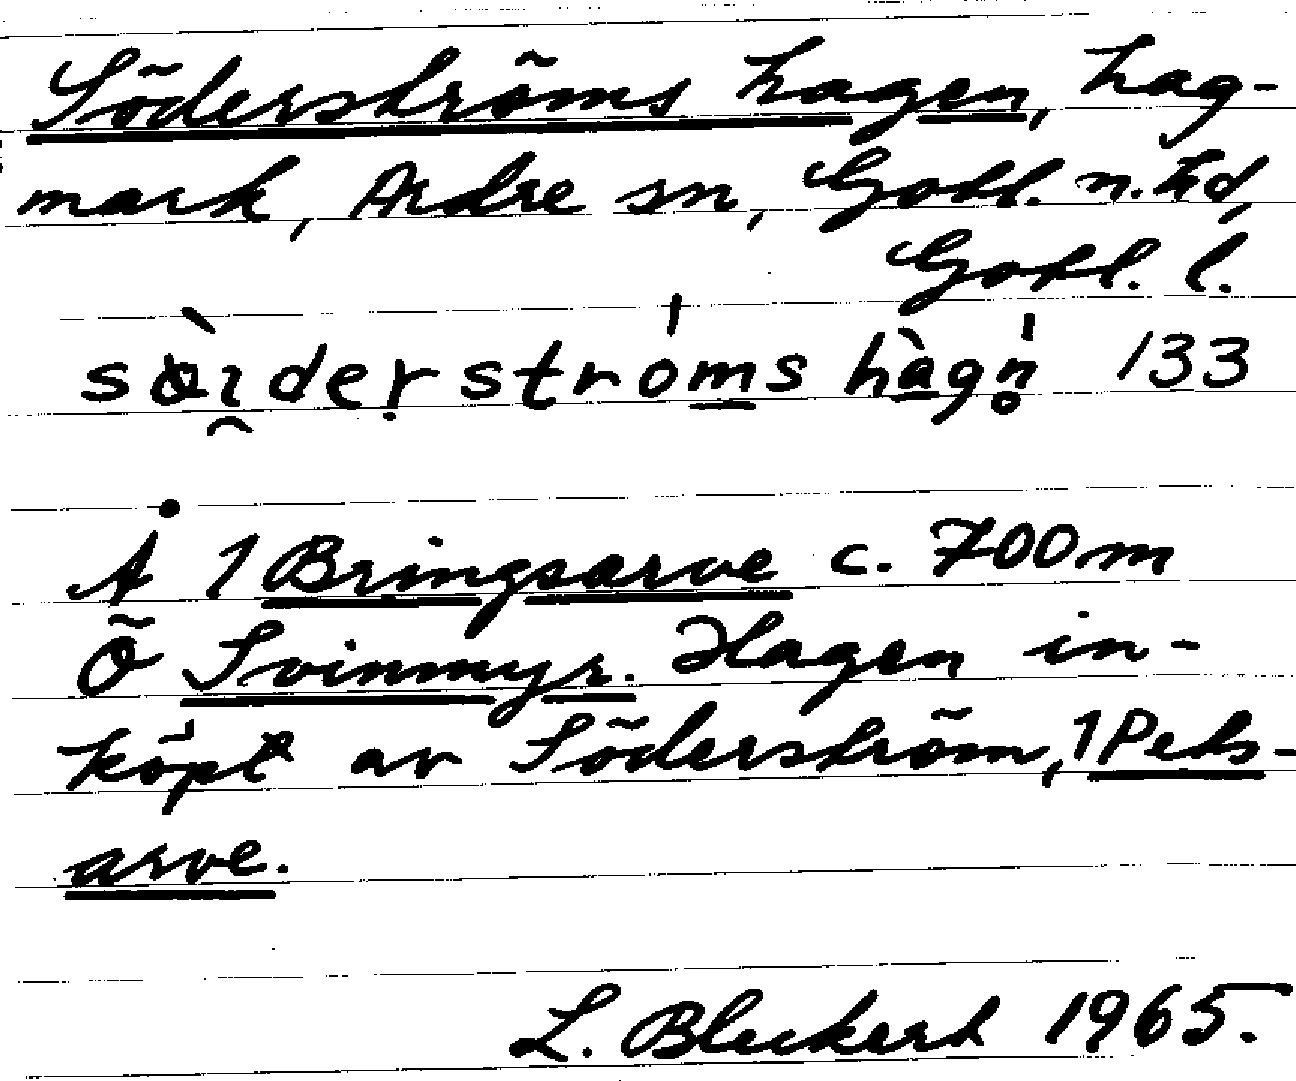 Söderströms hagen, hag-
mark, Ardre sn, Gotl. n. hd,
Gotl. l.
sö̀ı̯derṣtróms hàgn̥ 133
Å 1 Bringsarve c. 700 m
Ö Svinmyr. Hagen in-
köpt av Söderström, 1 Pets-
arve.
L. Bleckert 1965.